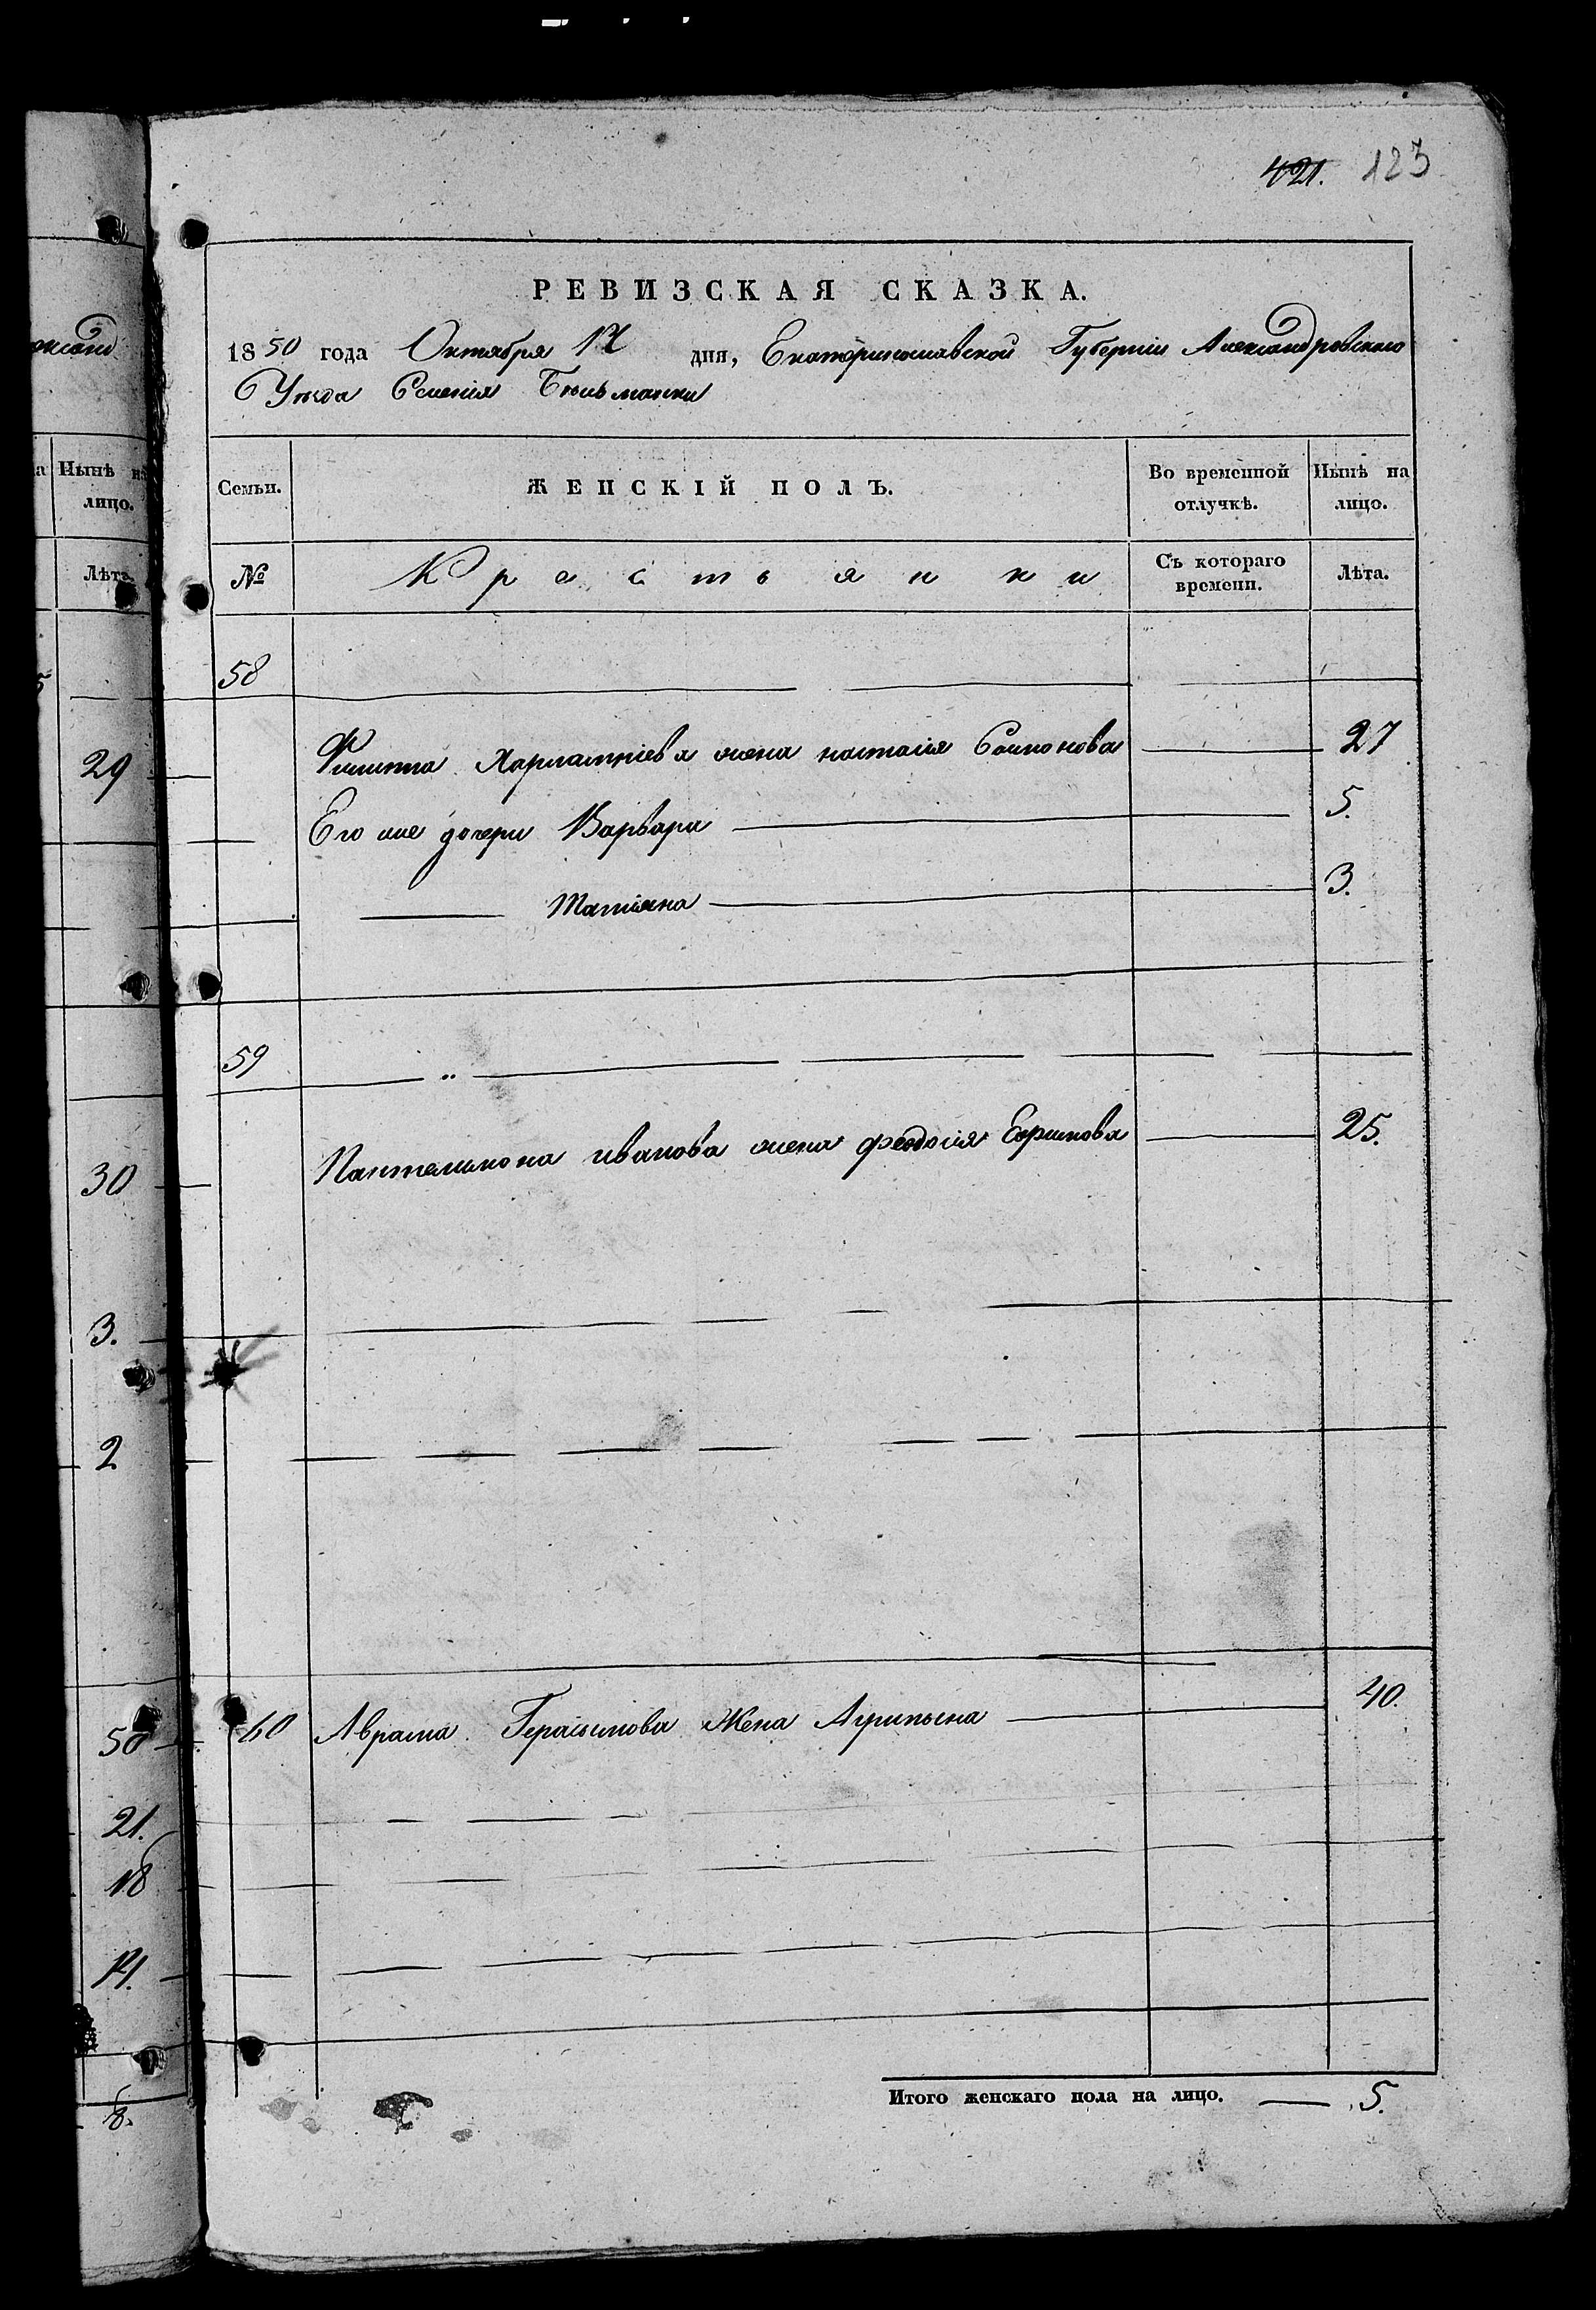 421. 123
оксанд
РЕВИЗСКАЯ СКАЗКА.
1850 года Октября 17 дня, Екатеринославской Губерніи Александровскаго
Уезда Селенія Бѣльманки
а Нынѣ на лицо.
Семьи. ЖЕНСКІЙ ПОЛЪ. Во временной отлучкѣ. Нынѣ на лицо.
Лѣта
№ Крестьянки Съ котораго времени. Лѣта.
5
58
29 Филиппа Харлампіева жена настасія Самонова 27
Его же дочери Варвара 5.
Татіяна 3.
59
30 Пантелимона иванова жена феодосія Ефимова 25.
3.
2
50 60 Аврама Герасимова Жена Агрипына 40.
21.
18
14.
8. Итого женскаго пола на лицо. 5.